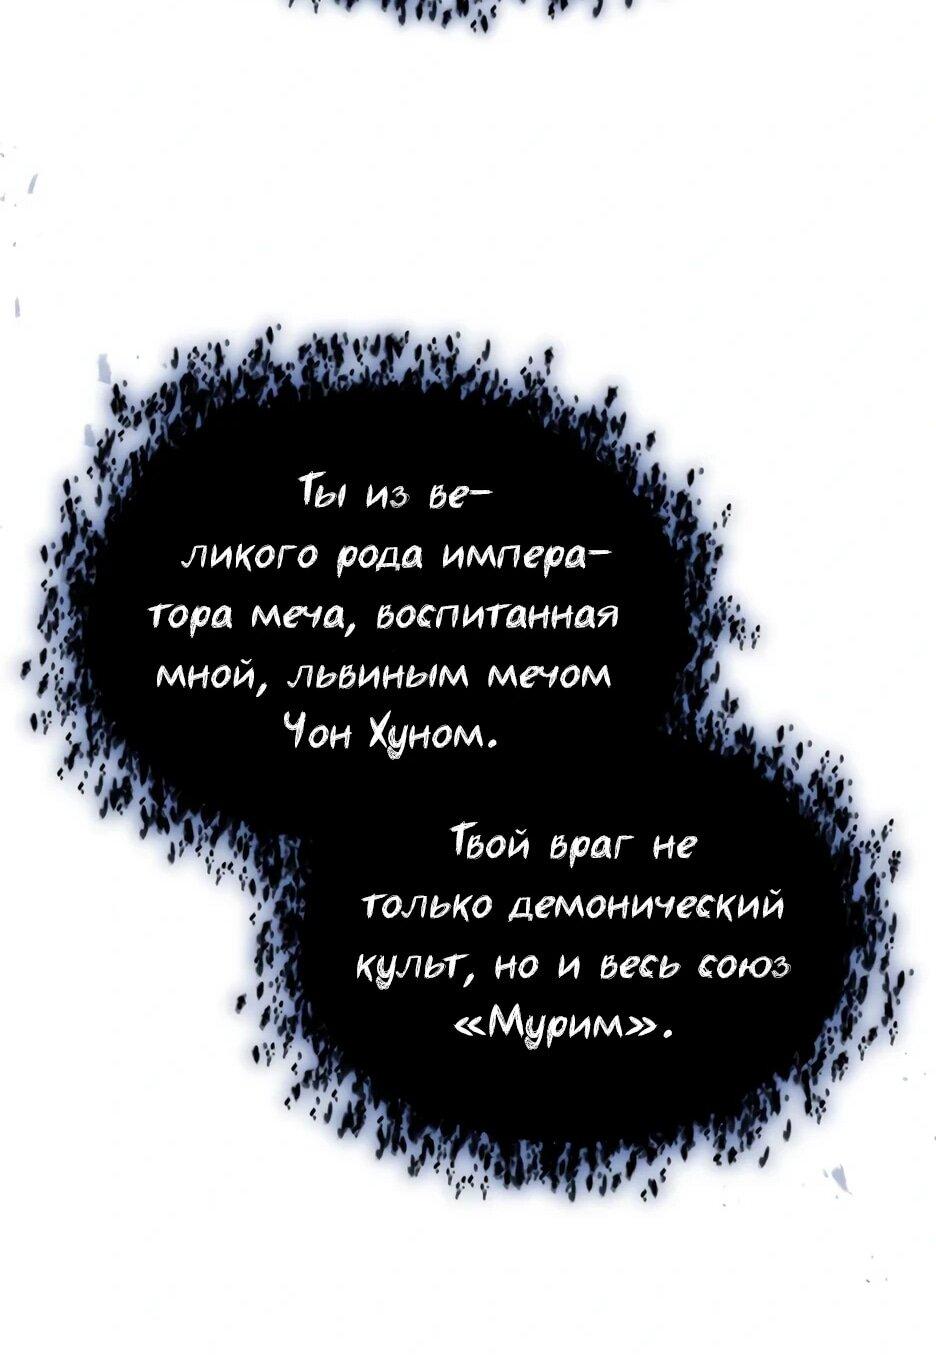 Ты из ве-
ликого рода импера-
тора меча, воспитанная
мной, львиным мечом
Чон Хуном.
Твой враг не
только демонический
культ, но и весь союз
«Мурим».